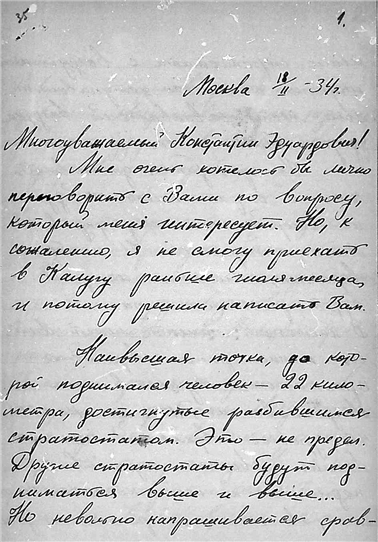 35 1.
Москва 18/II -34г.
Многоуважаемый Константин Эдуардович!
Мне очень хотелось бы лично
переговорить с Вами по вопросу,
который меня интересует. Но, к
сожалению, я не смогу приехать
в Калугу раньше июля месяца,
и потому решили написать Вам.
Наивысшая точка, до кото-
рой поднимался человек — 22 кило-
метра, достигнутые разбившимся
стратостатом. Это — не предел.
Другие стратостаты будут под-
ниматься выше и выше...
Но невольно напрашивается срав-